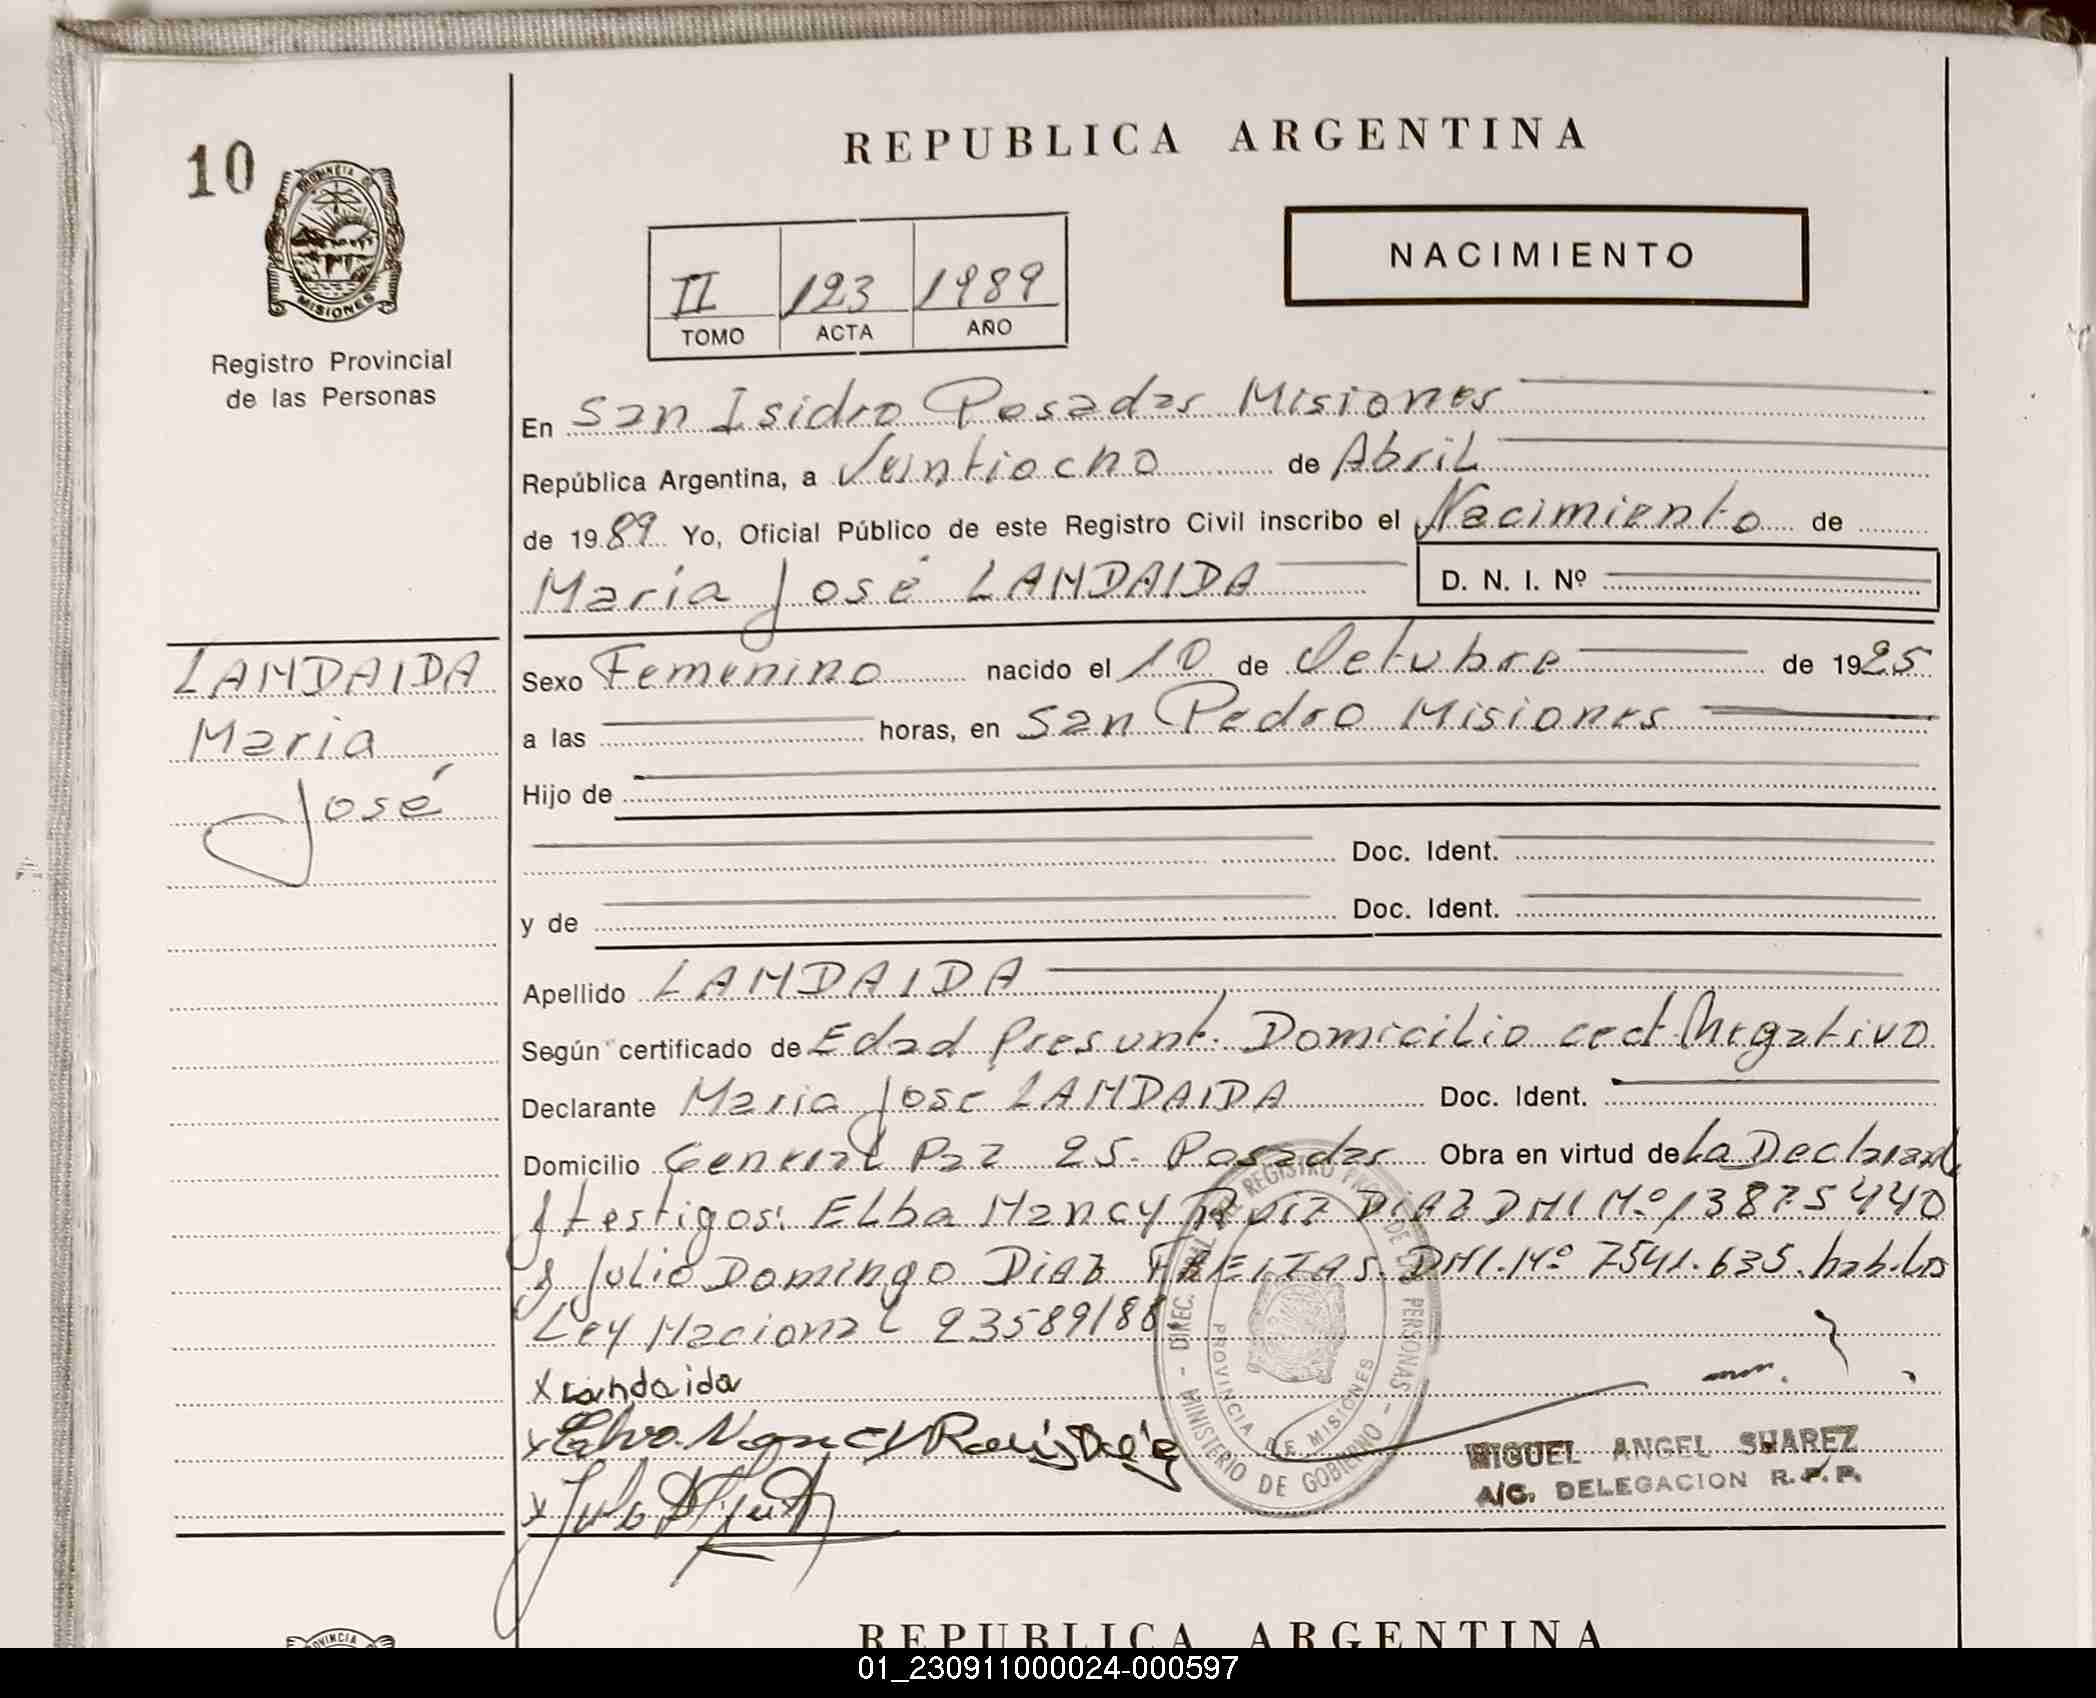 REPUBLICA ARGENTINA
10
PROVINCIA DE
MISIONES
Registro Provincial
de las Personas
NACIMIENTO
II 123 1989
TOMO ACTA AÑO
En San Isidro Posadas Misiones
República Argentina, a Veintiocho de Abril
de 1989 Yo, Oficial Público de este Registro Civil inscribo el Nacimiento de
Maria José LANDAIDA D. N. I. Nº
LANDAIDA
Maria
José
Sexo Femenino nacido el 10 de Octubre de 1925
a las horas, en San Pedro Misiones
Hijo de
Doc. Ident.
y de Doc. Ident.
Apellido LANDAIDA
Según certificado de Edad Presunt. Domicilio cert. Negativo
Declarante Maria Jose LANDAIDA Doc. Ident.
Domicilio General Paz 25. Posadas Obra en virtud de La Declarante
y testigos: ELba Nancy Ruiz DIAZ DNI Nº 13875440
y Julio Domingo DIAZ FREITAS. DNI. Nº 7541.635. hab. los
Ley Nacional 23589/88.
x Landaida
x Elva Nancy Ruis Dias
x Julio
DIREC. GRAL. DEL REGISTRO PROV. DE LAS PERSONAS
PROVINCIA DE MISIONES
MINISTERIO DE GOBIERNO
MIGUEL ANGEL SUAREZ
A/C. DELEGACION R. P. P.
PROVINCIA
REPUBLICA ARGENTINA
01_230911000024-000597